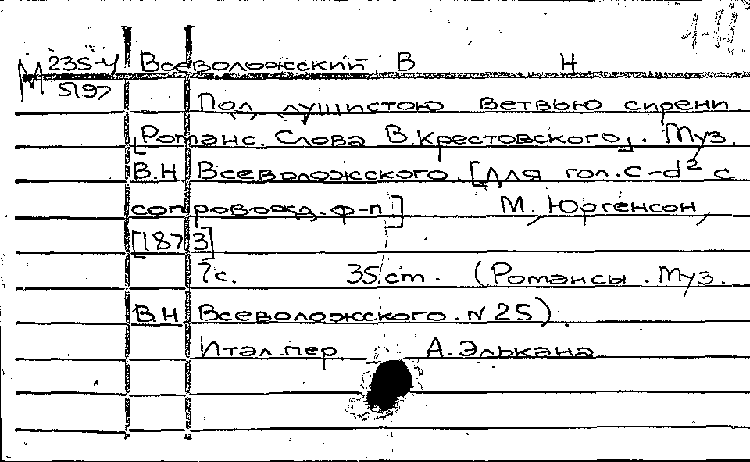 М 235-4 Всеволожский В Н
5197
Под душистою ветвью сирени
[Романс. Слова В. Крестовского]. Муз.
В.Н Всеволожского. [Для гол. c-d² с
сопровожд. ф-п] М, Юргенсон,
[1873]
7с. 35 cm. (Романсы. Муз.
В.Н Всеволожского. N 25).
Итал. пер. А. Элькана